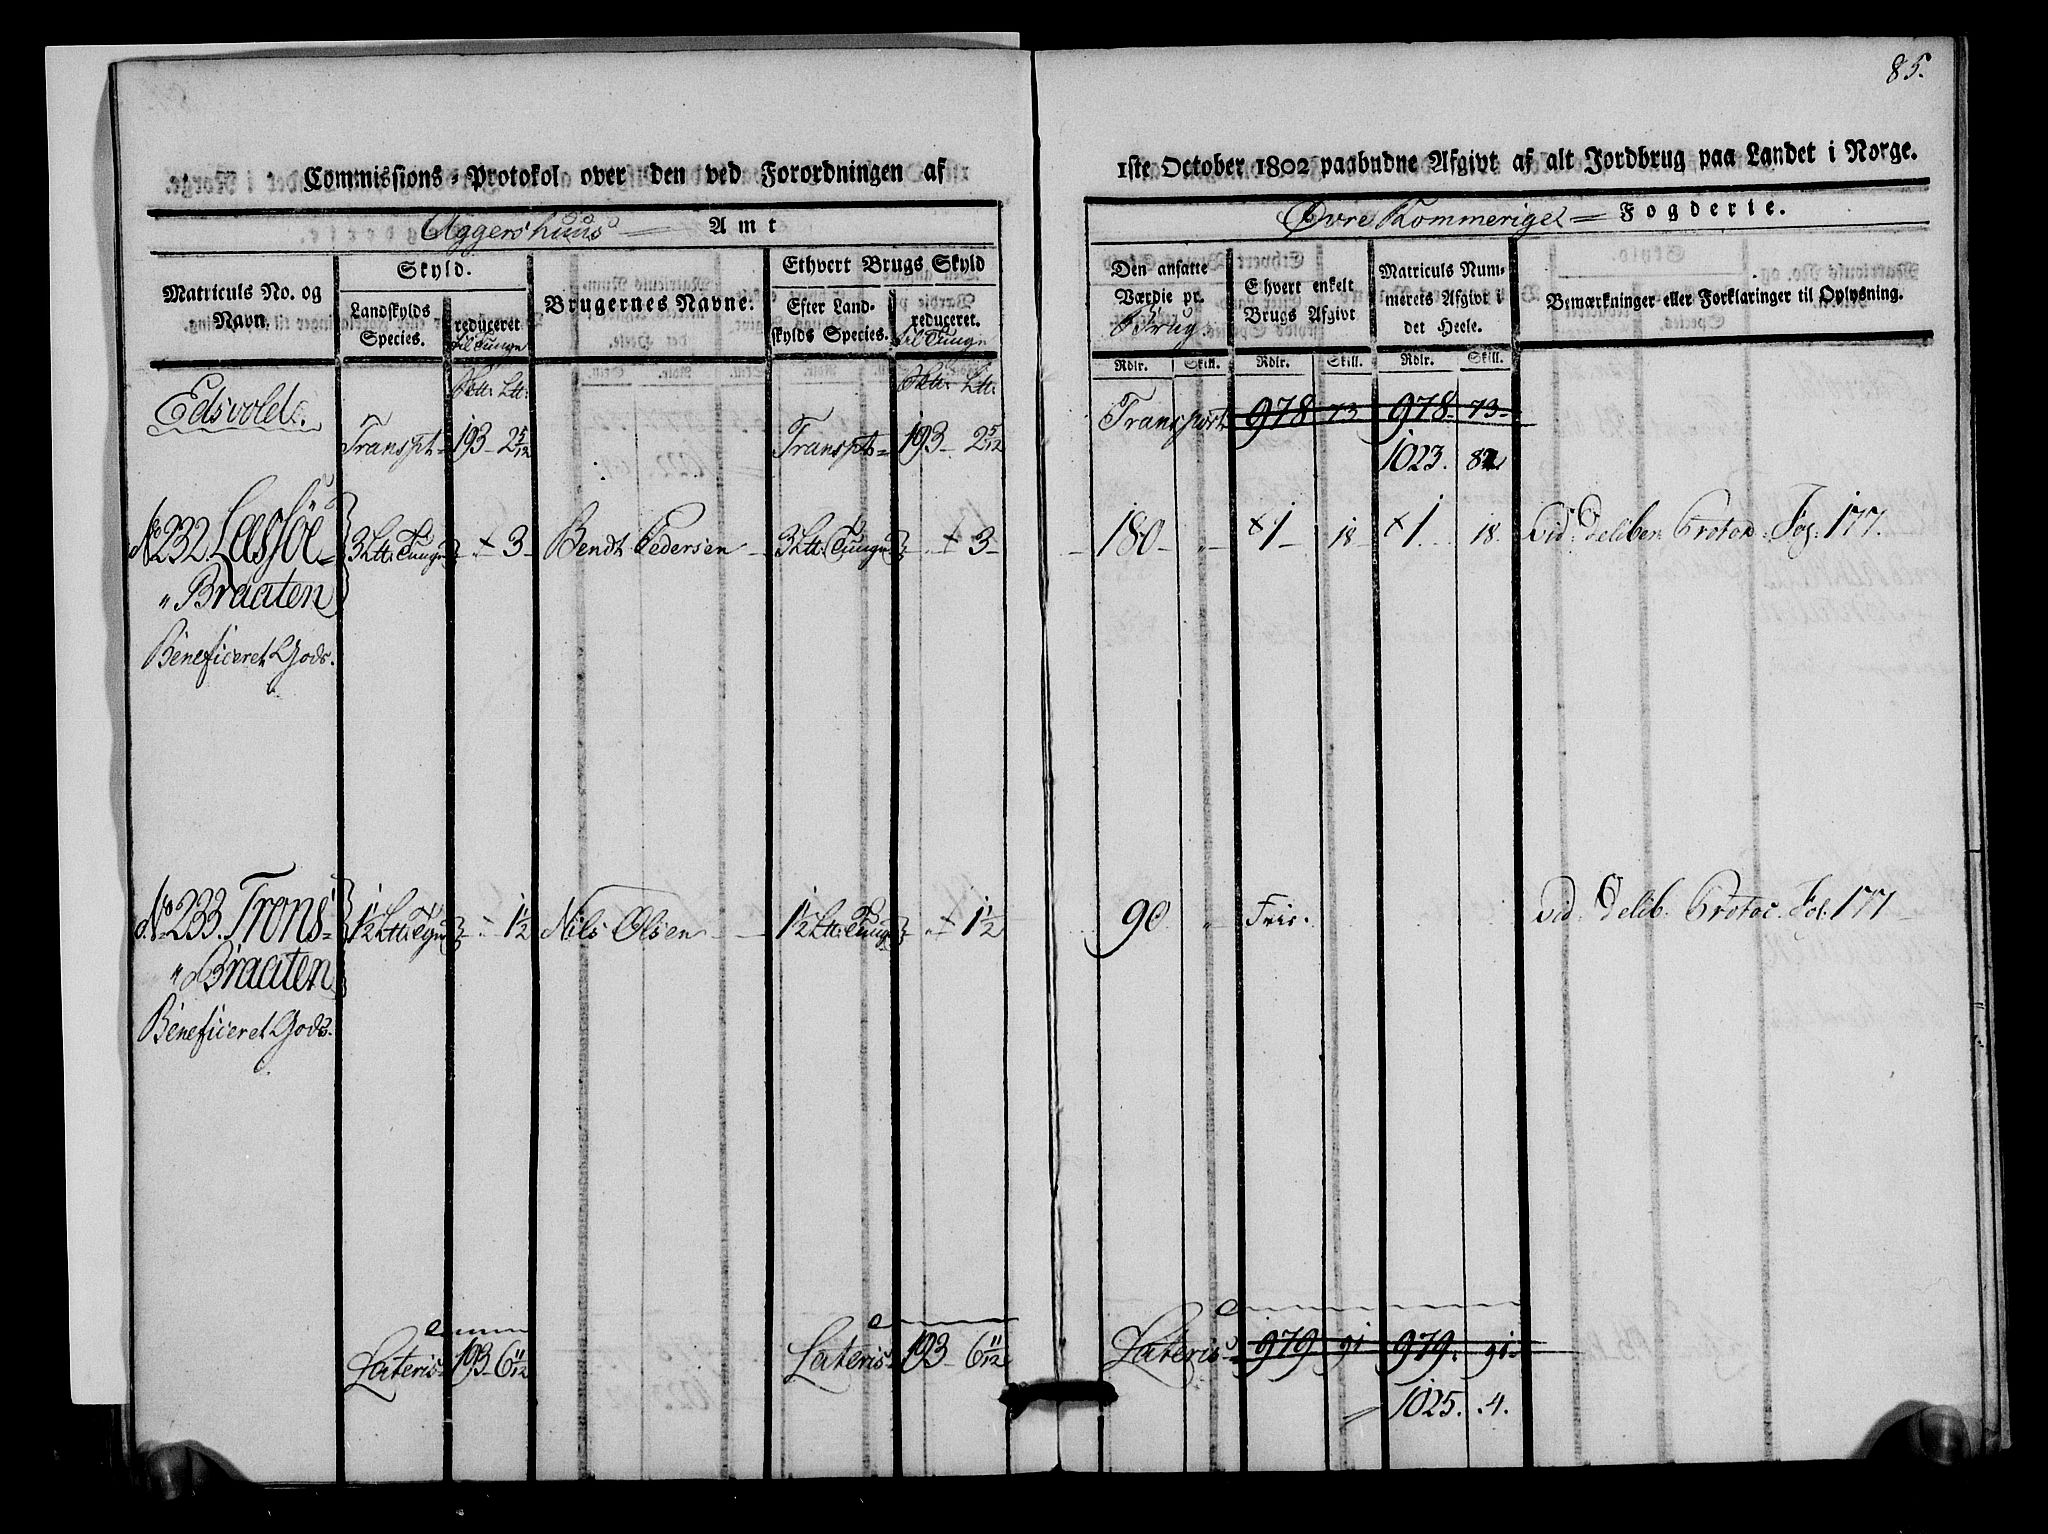 85.
Commissions-Protokol over den ved Forordningen af 1ste October 1802 paabudne Afgivt af alt Jordbrug paa Landet i Norge.
Aggershuus Amt
Øvre Rommeriges Fogderie.
Matriculs No. og Navn.
Skyld.
Landskylds Species.
reduceret til Tunge
Brugernes Navne.
Ethvert Brugs Skyld
Efter Landskylds Species.
reduceret. til Tunge
Den ansatte Værdie pr. Brug
Ehvert enkelt Brugs Afgivt
Matriculs Nummerets Afgivt i det Heele.
Bemærkninger eller Forklaringer til Oplysning.
Rdlr. Skill. Rdlr. Skill. Rdlr. Skill.
Edsvold.
Transpt 193 - 2 5/12 Transpt 193 - 2 5/12 Transport 978 73 978 73
1023. 82
No 232. Lassøe= 3 Ltt: Tunge - + 3 - Bendt Pedersen - 3 Ltt: Tunge - + 3 - 180 - " - +1 - 18 +1 18. Vid: Deliber: Protoc: Fol: 177.
" Braaten
Beneficeret Gods.
No 233. Trons= 1½ Ltt: Tge - " - 1½ Nils Olsen - 1½ Ltt: Tunge - + 1½ 90 " - Frie. Vid: Delib. Protoc. Fol: 177
" Braaten
Beneficeret Gods.
Lateris 193 - 6 11/12 Lateris 193 - 6 11/12 Lateris 979 91 979. 91
1025. 4.